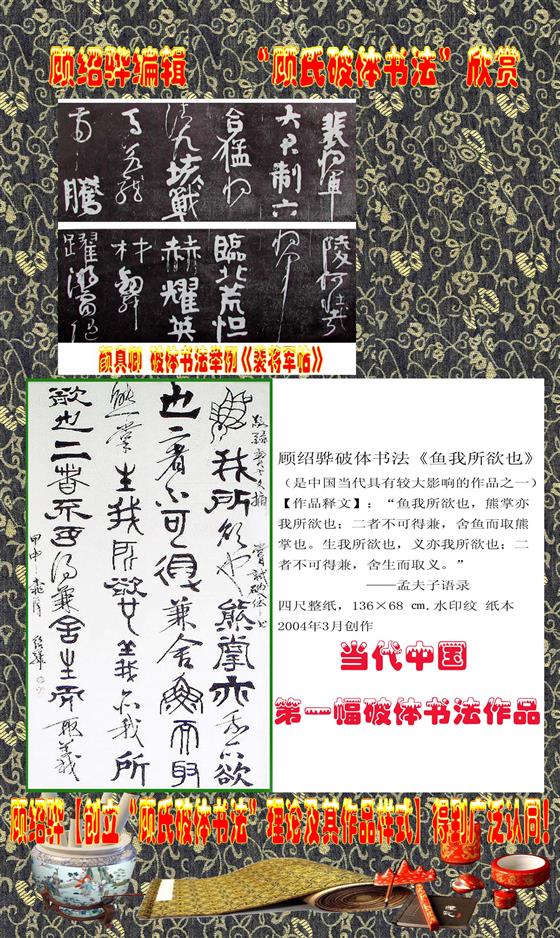 顾绍骅编辑 “顾氏破体书法”欣赏
裴将軍
大君制六
合猛将
清九垓戰
馬若龍
虎騰
陵何壮哉
将軍
臨北荒怛
赫耀英
材劍舞
躍游
颜真卿 破体书法举例《裴将军帖》
魚我所欲也熊掌亦我所欲
也二者不可得兼舍魚而取
熊掌生我所欲也義亦我所
欲也二者不可得兼舍生而取義
甲申
顾绍骅破体书法《鱼我所欲也》
（是中国当代具有较大影响的作品之一）
【作品释文】：“鱼我所欲也，熊掌亦
我所欲也；二者不可得兼，舍鱼而取熊
掌也。生我所欲也，义亦我所欲也；二
者不可得兼，舍生而取义。”
——孟夫子语录
四尺整纸，136×68 cm.水印纹 纸本
2004年3月创作
当代中国
第一幅破体书法作品
顾绍骅【创立“顾氏破体书法”理论及其作品样式】得到广泛认同！